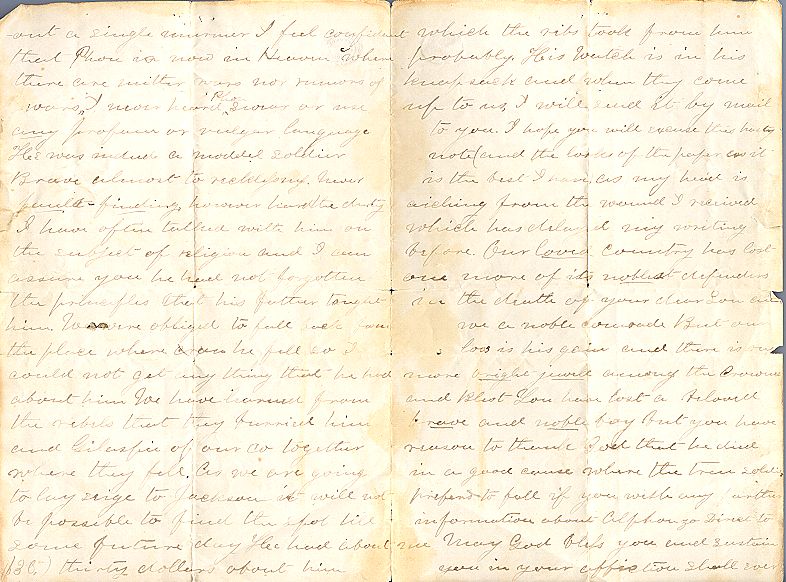 out a single murmer I feel confident
that Phon is now in Heaven where
there are neither wars nor rumors of
wars, I never heard Phon swear or use
any profane or vulgar language
He was indeed a moddel soldier
Brave almost to recklesness. Never
fault-finding, however hard the duty
I have often talked with him on
the subject of religion and I can
assure you he had not forgotten
the principles that his father taught
him. We were obliged to fall back from
the place where he fell so I
could not get any thing that he had
about him We have learned from
the rebels that they burried him
and Gilaspie of our co together
where they fell. As we are going
to lay seige to Jackson it will not
be possible to find the spot till
some future day He had about
(30,) thirty dollars about him
which the rebs took from him
probably. His Watch is in his
knapsack and when they come
up to us, I will send it by mail
to you. I hope you will excuse this
note (and the looks of the paper as it
is the best I have, as my head is
aiching from the wound I recived
which has delayed my writing
before. Our loved Country has lost
one more of its noblest defenders
in the death of your dear Son and
we a noble comrade But our
loss is his gain and there is one
more bright jewell among the Crowned
and Blest You have lost a Beloved
brave and noble boy But you have
reason to thank God that he died
in a good cause where the true soldier
prefers to fall if you wish any further
information about Alphonzo Direct to
me May God bless you and sustain
you in your affliction shall ever